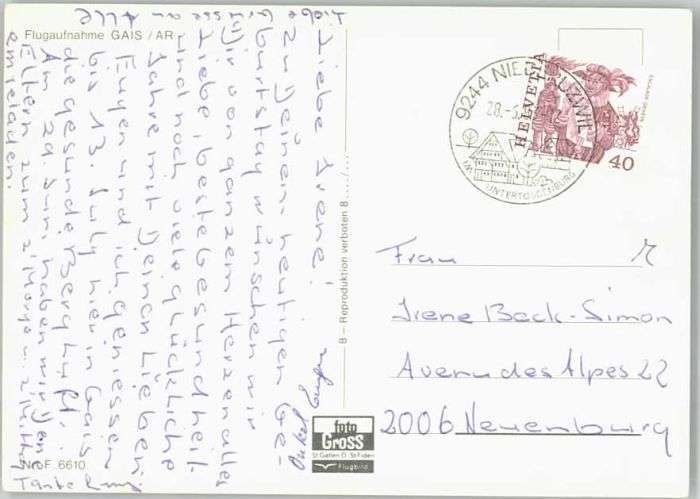 Flugaufnahme GAIS / AR
Liebe Grüsse an Alle
Liebe Irene!
Zu Deinem heutigen Ge-
burtstag wünschen wir
Dir von ganzem Herzen alles
Liebe, beste Gesundheit
und noch viele glückliche
Jahre mit Deinen Lieben
Eugen und ich geniessen
bis 13. July hier in Gais
die gesunde Bergluft.
Am 29 Juni haben wir Den
Eltern zum z'Morge u. z'Mittag
eingeladen.
Onkel Eugen
Tante
Nr. F 6610
B – Reproduktion verboten B
foto
Gross
St Gallen O. St Fiden
Flugbild
9244 NIEDERUZWIL
28.-5
IM UNTERTOGGENBURG
HELVETIA
40
Frau
Irene Beck-Simon
Avenu des Alpes 22
2006 Neuenburg